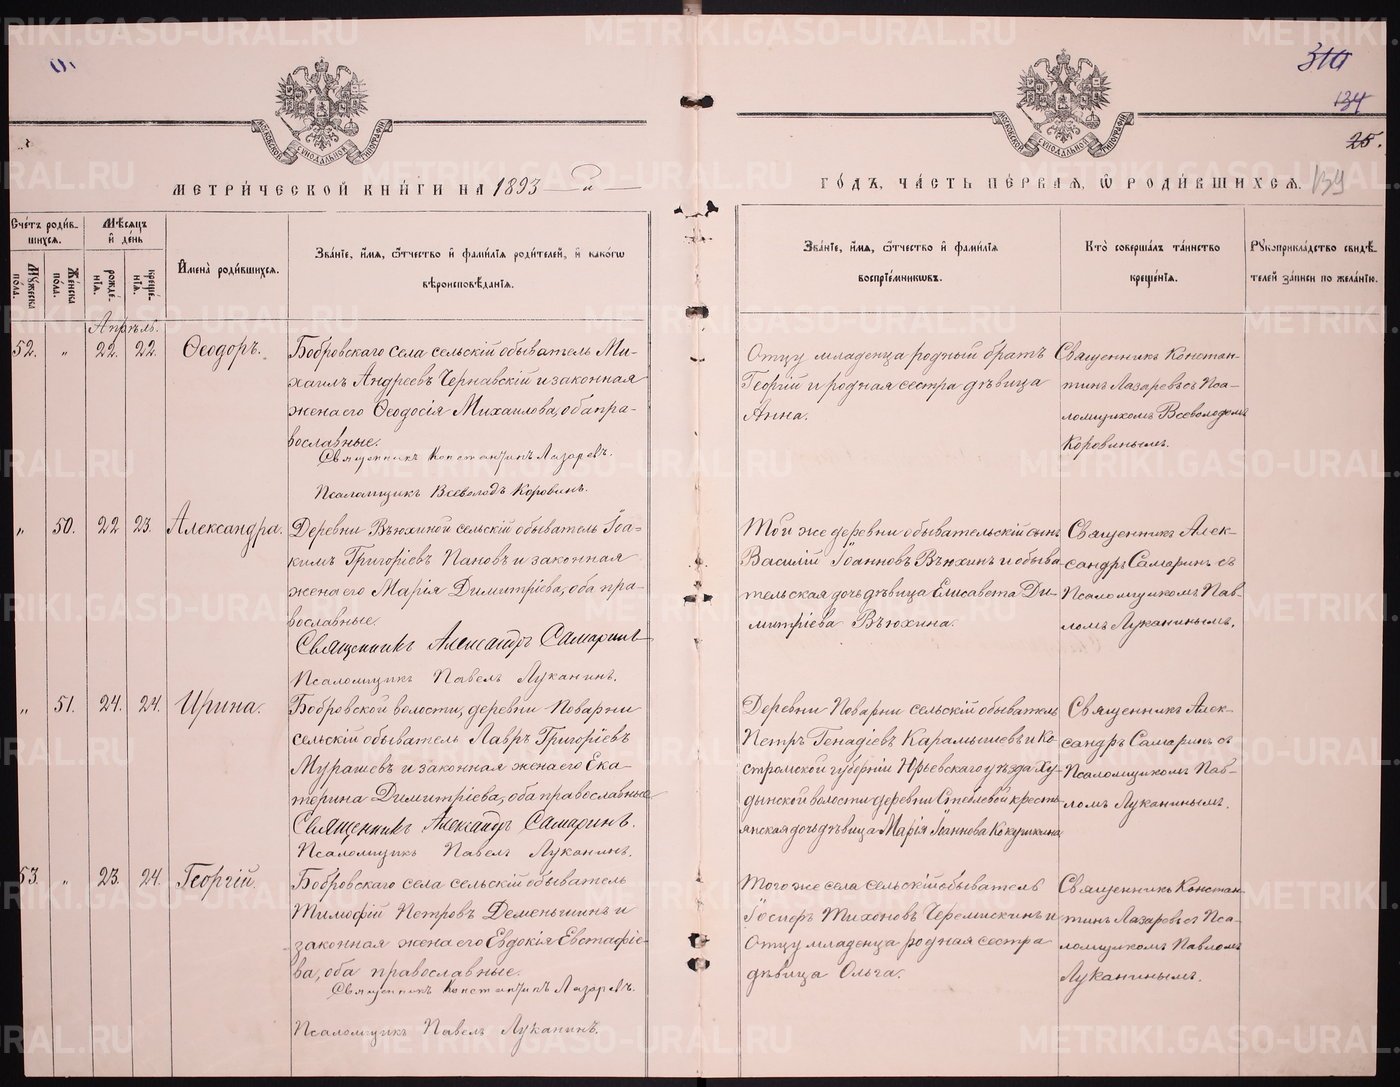 310
134
25.
МЕТРИ́ЧЕСКОЙ КНИ́ГИ НА 1893 й
ГО́ДЪ, ЧА́СТЬ ПЕ́РВАЯ, Ѿ РОДИ́ВШИХСѦ.
134
Сче́тъ роди́в-
шихся.
Му́жеска по́ла.
Же́нска по́ла.
Мѣ́сяцъ
и де́нь
рожде́-
нія.
креще́-
нія.
Имена̀ роди́вшихся.
Зва́ніе, и́мя, о́тчество и фами́лія роди́телей, и како́гѡ
вѣроисповѣ́данія.
Зва́ніе, и́мя, о́тчество и фами́лія
воспріе́мниковъ.
Кто̀ соверша́лъ та́инство
креще́нія.
Рукоприкла́дство свидѣ́-
телей за́писи по жела́нію.
Апрѣль.
52. " 22. 22. Ѳеодоръ.
Бобровскаго села сельскій обыватель Ми-
хаилъ Андреевъ Чернавскій и законная
жена его Ѳеодосія Михаилова, оба пра-
вославные.
Священникъ Константинъ Лазаревъ.
Псаломщикъ Всеволодъ Коровинъ.
Отцу младенца родный братъ
Георгій и родная сестра дѣвица
Анна.
Священникъ Констан-
тинъ Лазаревъ съ Пса-
ломщикомъ Всеволодомъ
Коровинымъ.
" 50. 22 23. Александра.
Деревни Вьюхиной сельскій обыватель Іоа-
кимъ Григоріевъ Пановъ и законная
жена его Марія Димитріева, оба пра-
вославные.
Священникъ Александръ Самаринъ
Псаломщикъ Павелъ Луканинъ.
Той же деревни обывательскій сынъ
Василій Іоанновъ Вьюхинъ и обыва-
тельская дочь дѣвица Елисавета Ди-
митріева Вьюхина.
Священникъ Алек-
сандръ Самаринъ съ
Псаломщикомъ Пав-
ломъ Луканинымъ.
" 51. 24. 24. Ирина.
Бобровской волости, деревни Поварни
сельскій обыватель Лавръ Григоріевъ
Мурашевъ и законная жена его Ека-
терина Димитріева, оба православные
Священникъ Александръ Самаринъ.
Псаломщикъ Павелъ Луканинъ.
Деревни Поварни сельскій обыватель
Петръ Генадіевъ Карамышевъ и Ко-
стромской губерніи Юрьевскаго уѣзда Ху-
дынской волости деревни Стеблевой кресть-
янская дочь дѣвица Марія Іоаннова Кокушкина
Священникъ Алек-
сандръ Самаринъ съ
Псаломщикомъ Пав-
ломъ Луканинымъ.
53. " 23. 24. Георгій.
Бобровскаго села сельскій обыватель
Тимофій Петровъ Деменьшинъ и
законная жена его Евдокія Евстафіе-
ва, оба православные.
Священникъ Константинъ Лазаревъ.
Псаломщикъ Павелъ Луканинъ.
Того же села сельскій обыватель
Іосифъ Тихоновъ Черемискинъ и
Отцу младенца родная сестра
дѣвица Ольга.
Священникъ Констан-
тинъ Лазаревъ съ Пса-
ломщикомъ Павломъ
Луканинымъ.